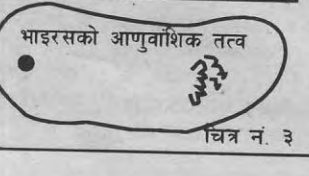 भाइरसको आणुवांशिक तत्व
चित्र नं. ३